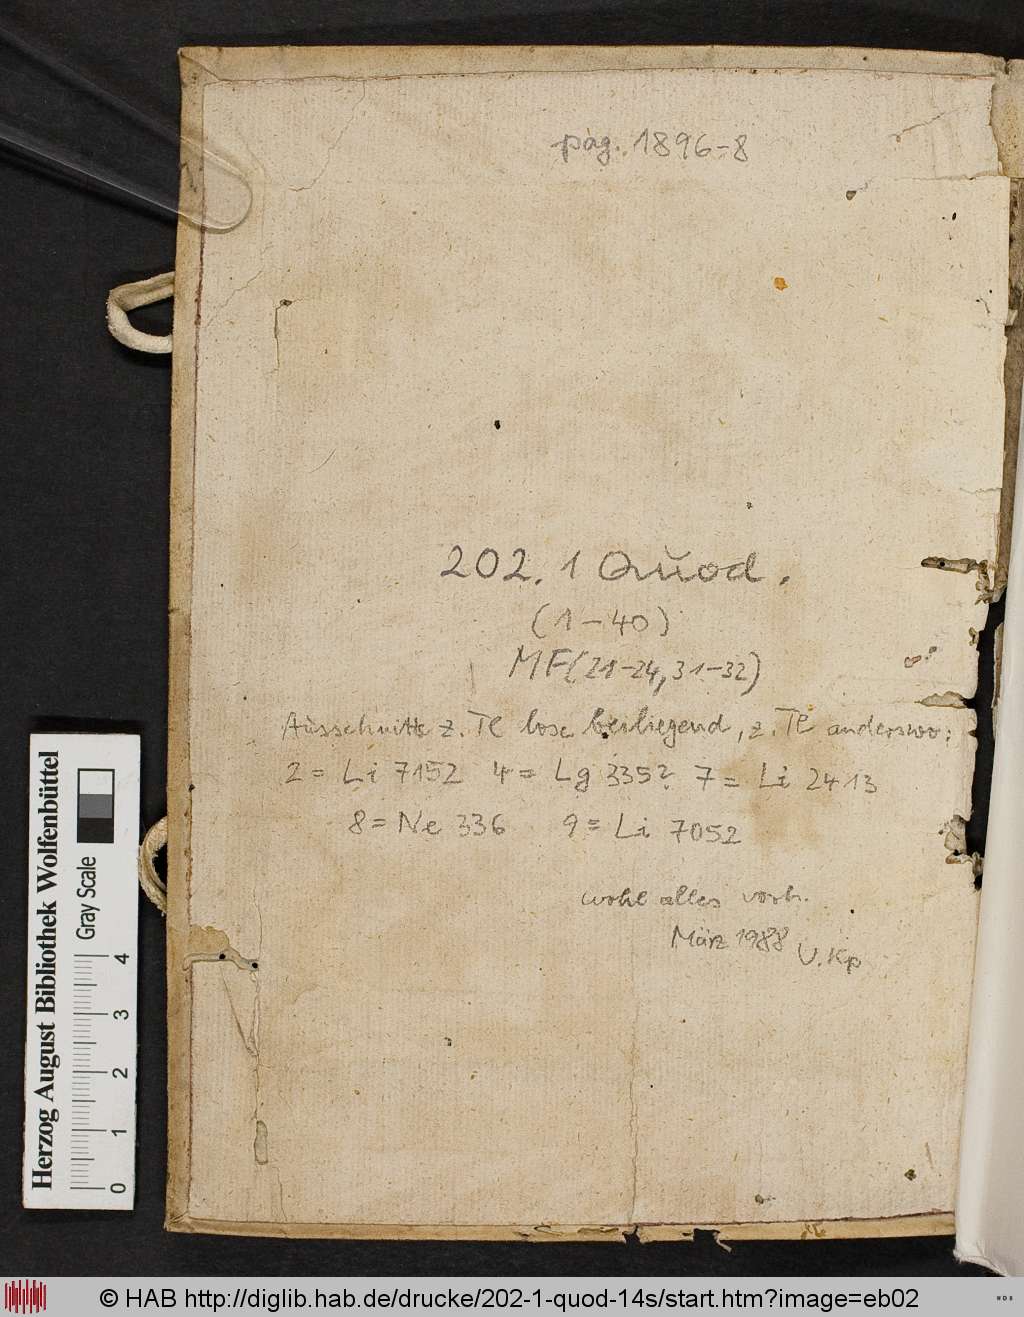 pag. 1896-8
202. 1 Quod.
(1-40)
MF (21-24, 31-32)
Ausschnitte z. Tl lose beiliegend, z. Tl anderswo:
2 = Li 7152 4 = Lg 3352 7 = Li 2413
8 = Ne 336 9 = Li 7052
wohl alles vorh.
März 1988 U. Kp
Herzog August Bibliothek Wolfenbüttel
Gray Scale
0 1 2 3 4
© HAB http://diglib.hab.de/drucke/202-1-quod-14s/start.htm?image=eb02